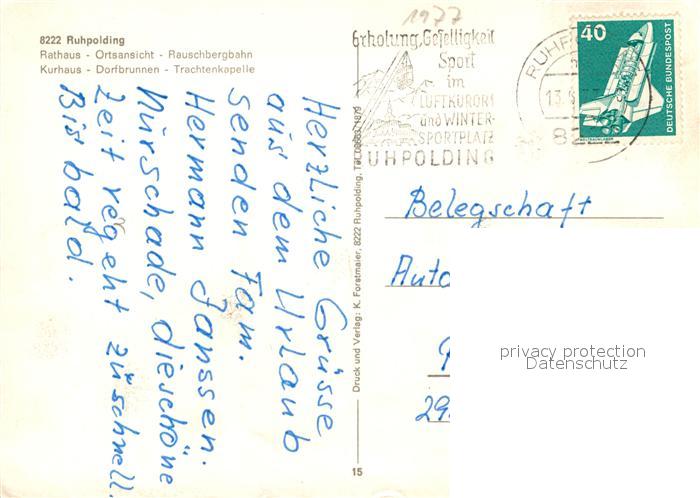 1977
8222 Ruhpolding
Rathaus - Ortsansicht - Rauschbergbahn
Kurhaus - Dorfbrunnen - Trachtenkapelle
Herzliche Grüsse
aus dem Urlaub
senden Fam.
Hermann Janssen.
Nur schade, die schöne
Zeit vergeht zu schnell.
Bis bald.
Erholung, Geselligkeit
Sport
im
LUFTKURORT
und WINTER-
SPORTPLATZ
RUHPOLDING
RUHP
13.
82
40
DEUTSCHE BUNDESPOST
Druck und Verlag: K. Forstmaier, 8222 Ruhpolding,
15
Belegschaft
Auto
29
privacy protection
Datenschutz